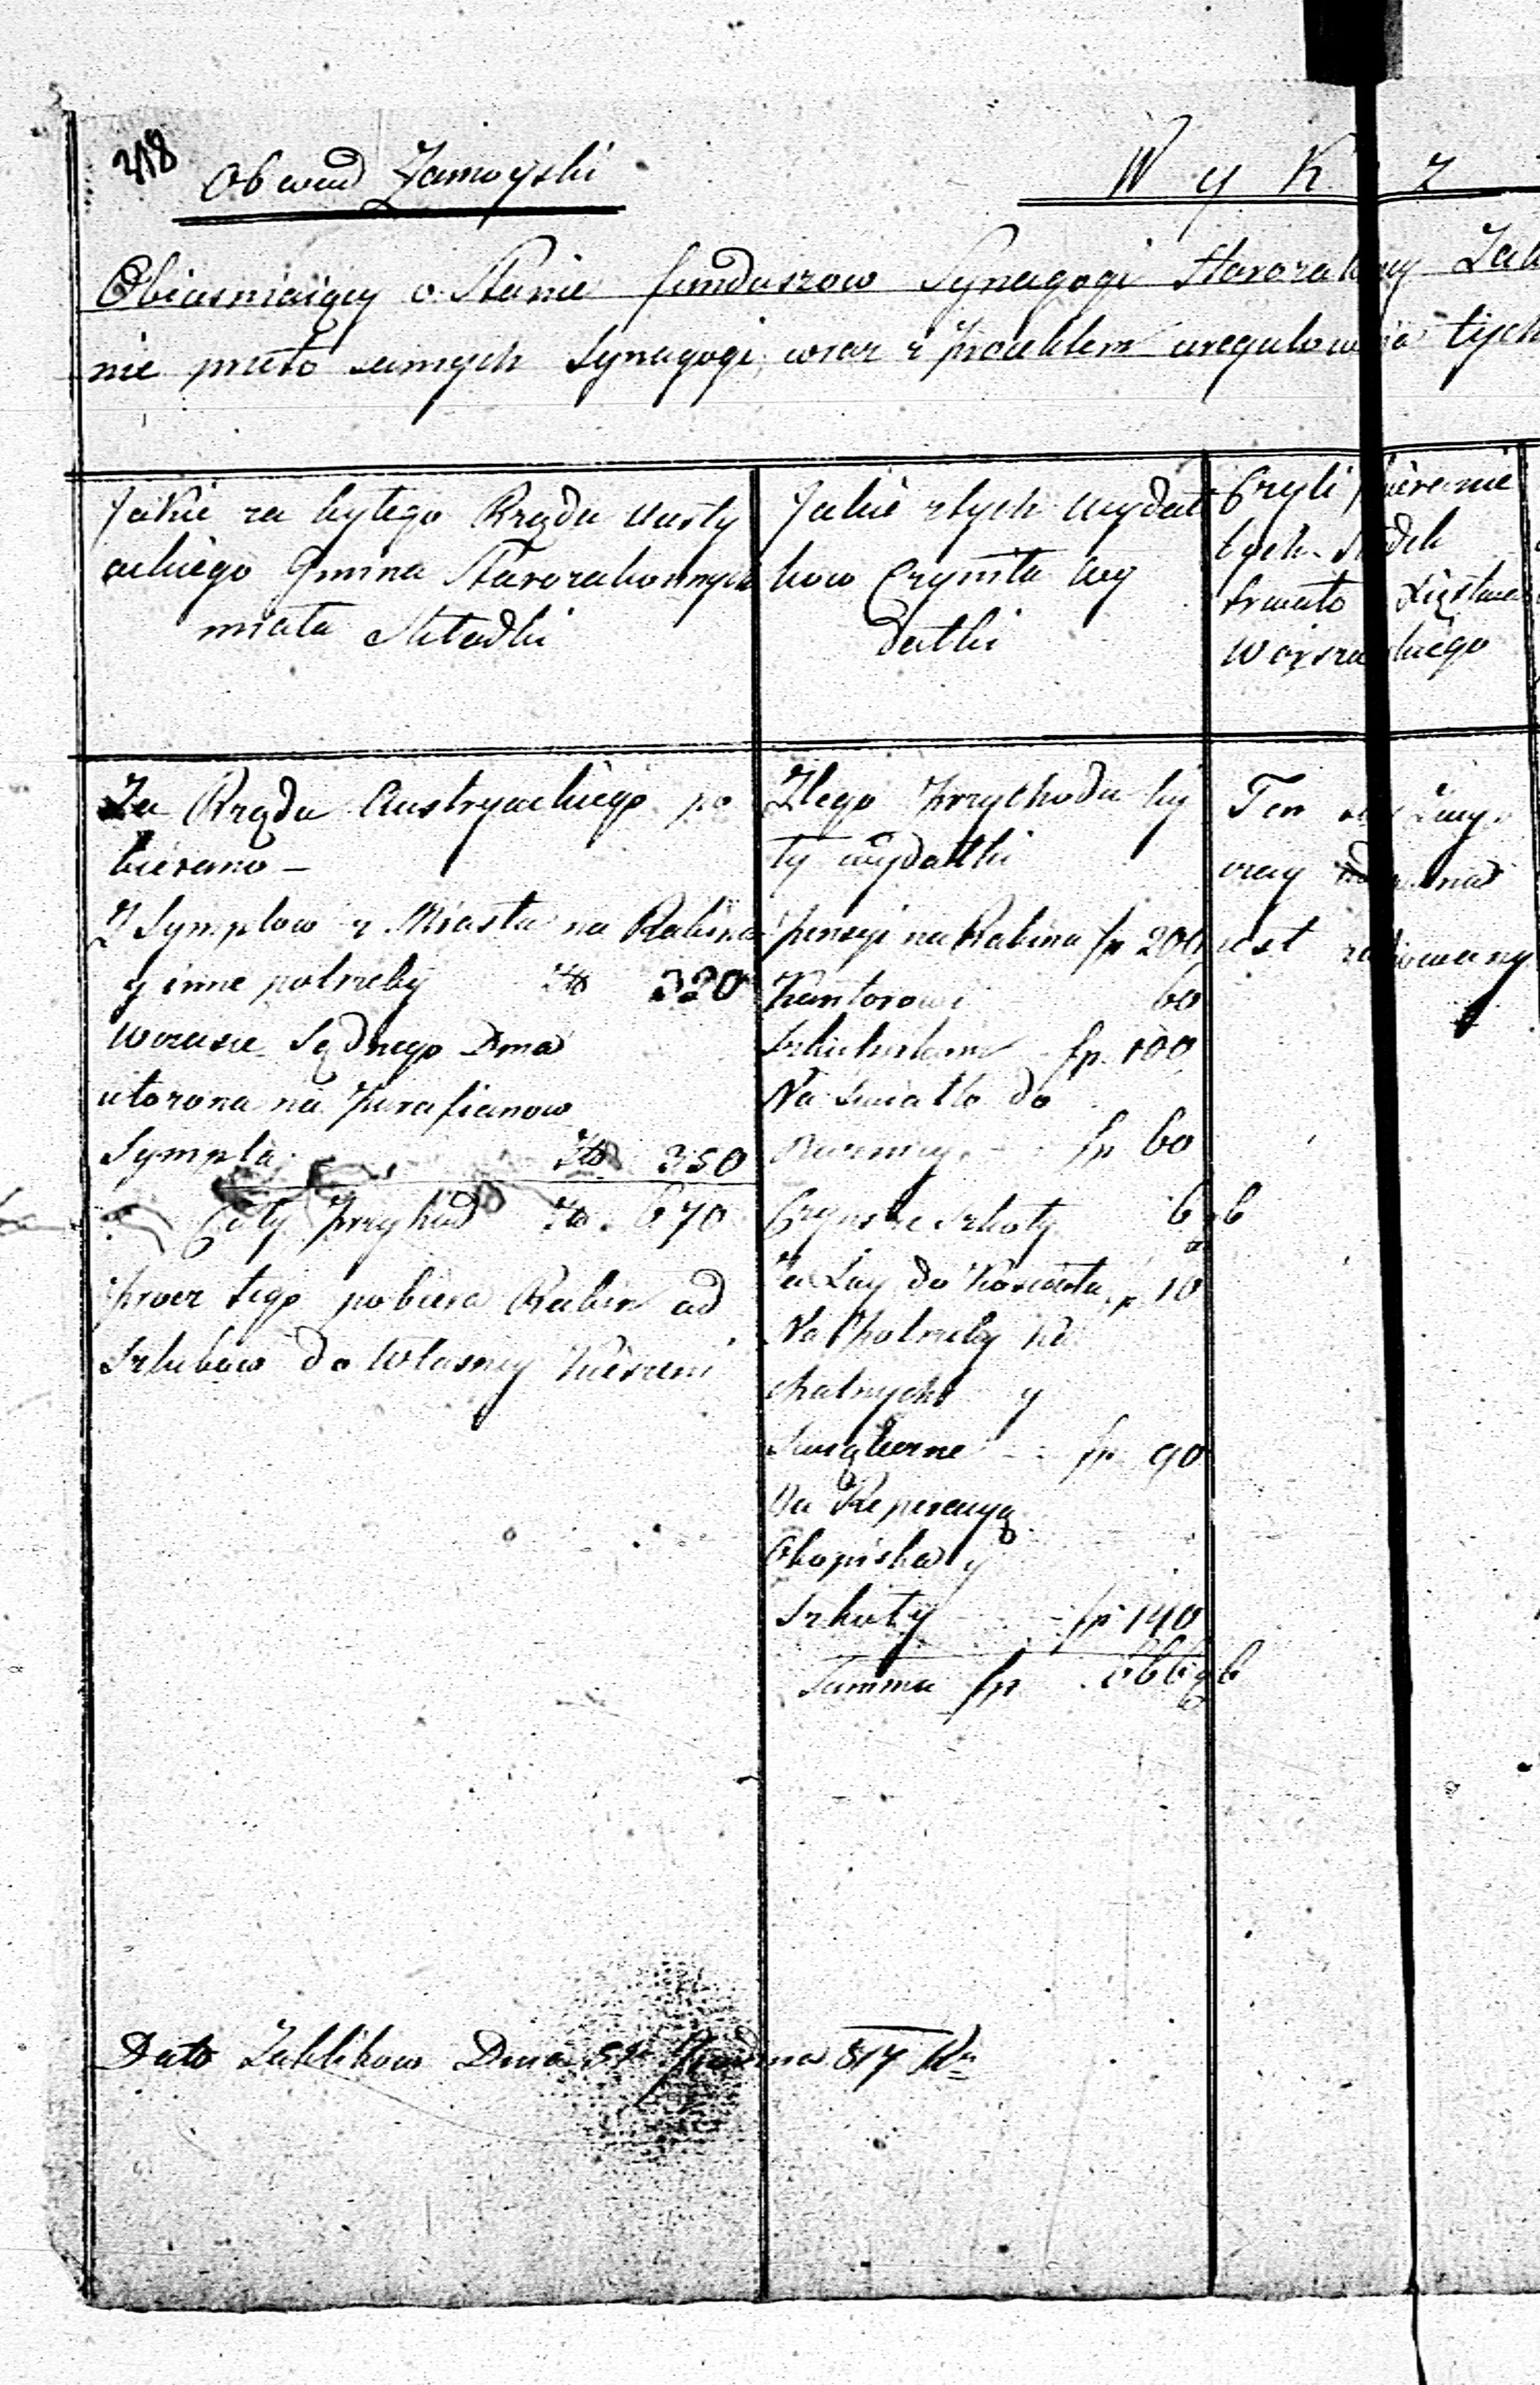 318 Obwud Zamoyski
W y K z
Obiasniaiący o Stanie funduszow Synagogi Starozakonny
nie przeto samych Synagogi wraz z Proiektem uregulowania tych
Jakie za bytego Rządu Austry
ackiego Gmina Starozakonnych
miała Składki
Jakie z tych wydat
kow Czyniła wy
datki
Czyli pobieranie
tych
trwało Xięstwa
Warszawskiego
Za Rządu Austryackiego po
bierano –
Z Symplow z Miasta na Rabina
y inne potrzeby Złt 320
w czasie Sądnego Dnia
na Parafianow
Sympla Złt 350
Cały Przychud Zł. 670
Procz tego pobiera Rabin od
Szlubow do Własny Kieszeni
Z tego Przychodu by
ły wydatki
Pensyi na Rabina fp 200
Kantorowi 60
Szkulnikowi fp. 100
Na Swiatło do
fp 60
Czynsz Szkoły 6 g 6
Za Łuy do Koscioła p 10
Na Potrzeby Ka
chalnych y
fp 90
Na Reperacyą
Okopiska y
Szkoły fp 140
Summa fp 666 g 6
Ten
czay
iest
Dato Zaklikow Dnia 817 Rr